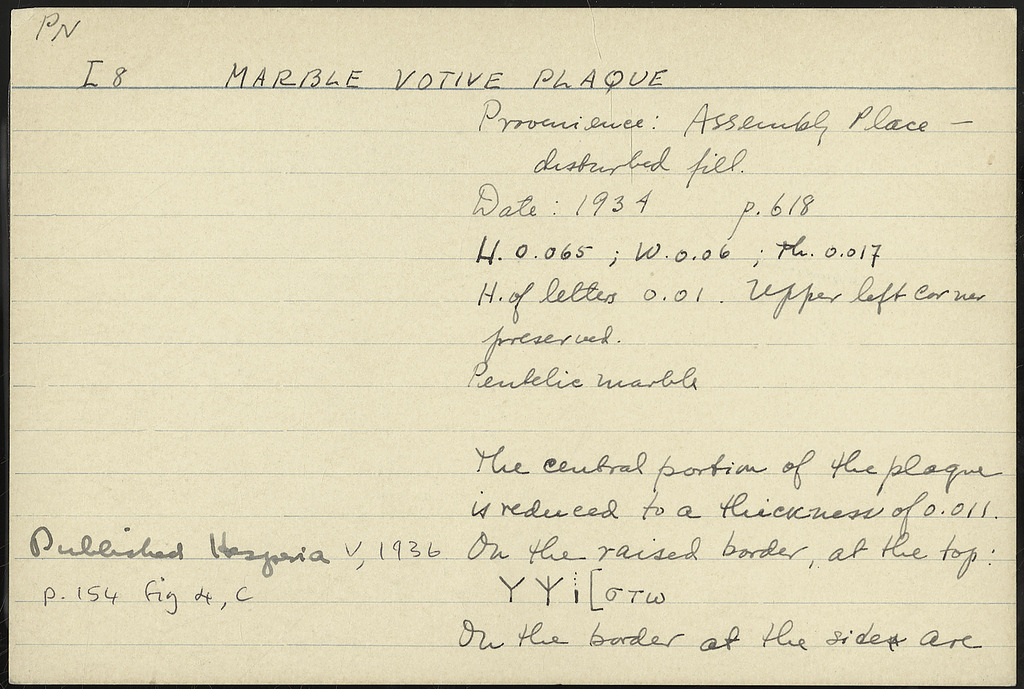 PN
I 8 MARBLE VOTIVE PLAQUE
Provenience: Assembly Place –
disturbed fill.
Date: 1934 p. 618
H. 0.065 ; W. 0.06 ; Th. 0.017
H. of letters 0.01. Upper left corner
preserved.
Pentelic marble
The central portion of the plaque
is reduced to a thickness of 0.011.
On the raised border, at the top:
Υ Ψ ί[στω
On the border at the side are
Published Hesperia V, 1936
p. 154 fig 4, C